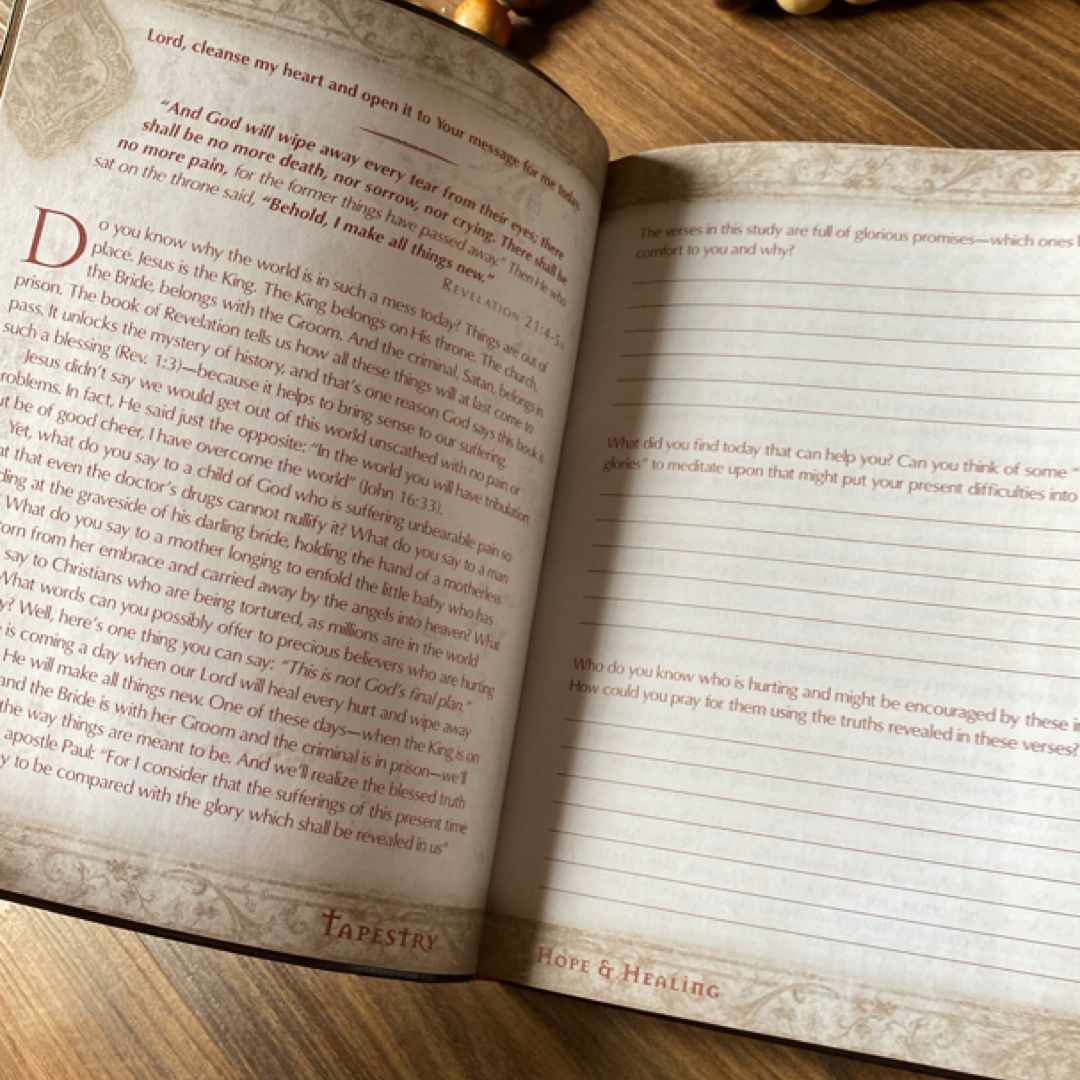 Lord, cleanse my heart and open it to Your message for me today.
“And God will wipe away every tear from their eyes; there
shall be no more death, nor sorrow, nor crying. There shall be
no more pain, for the former things have passed away.” Then He who
sat on the throne said, “Behold, I make all things new.”
Revelation 21:4-5a
Do you know why the world is in such a mess today? Things are out of
place. Jesus is the King. The King belongs on His throne. The church,
the Bride, belongs with the Groom. And the criminal, Satan, belongs in
prison. The book of Revelation tells us how all these things will at last come to
pass. It unlocks the mystery of history, and that’s one reason God says this book is
such a blessing (Rev. 1:3)—because it helps to bring sense to our suffering.
Jesus didn’t say we would get out of this world unscathed with no pain or
roblems. In fact, He said just the opposite: “In the world you will have tribulation,
ut be of good cheer, I have overcome the world” (John 16:33).
Yet, what do you say to a child of God who is suffering unbearable pain so
at that even the doctor’s drugs cannot nullify it? What do you say to a man
ding at the graveside of his darling bride, holding the hand of a motherless
What do you say to a mother longing to enfold the little baby who has
orn from her embrace and carried away by the angels into heaven? What
say to Christians who are being tortured, as millions are in the world
What words can you possibly offer to precious believers who are hurting
y? Well, here’s one thing you can say: “This is not God’s final plan.”
is coming a day when our Lord will heal every hurt and wipe away
He will make all things new. One of these days—when the King is on
and the Bride is with her Groom and the criminal is in prison—we’ll
the way things are meant to be. And we’ll realize the blessed truth
apostle Paul: “For I consider that the sufferings of this present time
y to be compared with the glory which shall be revealed in us”
Tapestry
The verses in this study are full of glorious promises—which ones
comfort to you and why?
What did you find today that can help you? Can you think of some “
glories” to meditate upon that might put your present difficulties into
Who do you know who is hurting and might be encouraged by these
How could you pray for them using the truths revealed in these verses?
Hope & Healing